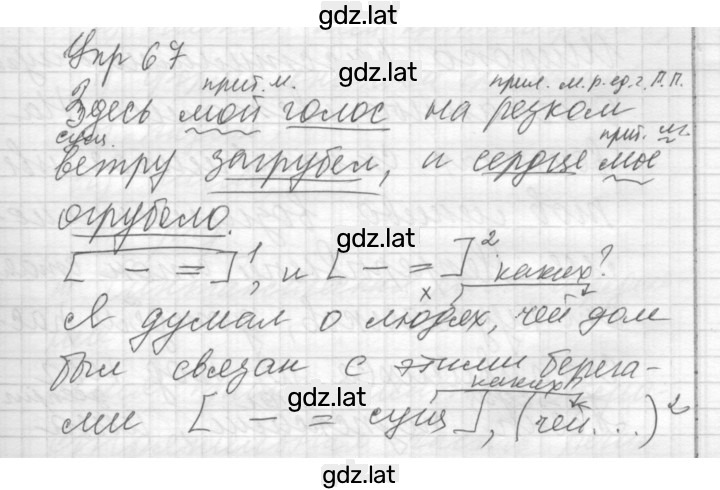 gdz.lat
Упр 67
прит. м.
gdz.lat
прил. м.р.ед.ч.П.п.
Здесь мой голос на резком
сущ.
прит. м.
ветру загрубел, и сердце моё
gdz.lat
огрубело.
gdz.lat
[ — = ]¹, и [ — = ]². каких?
х
Я думал о людях, чей дом
был связан с этими берега-
gdz.lat
каких?
ми [ — = сущ ], (чей...)²
gdz.lat